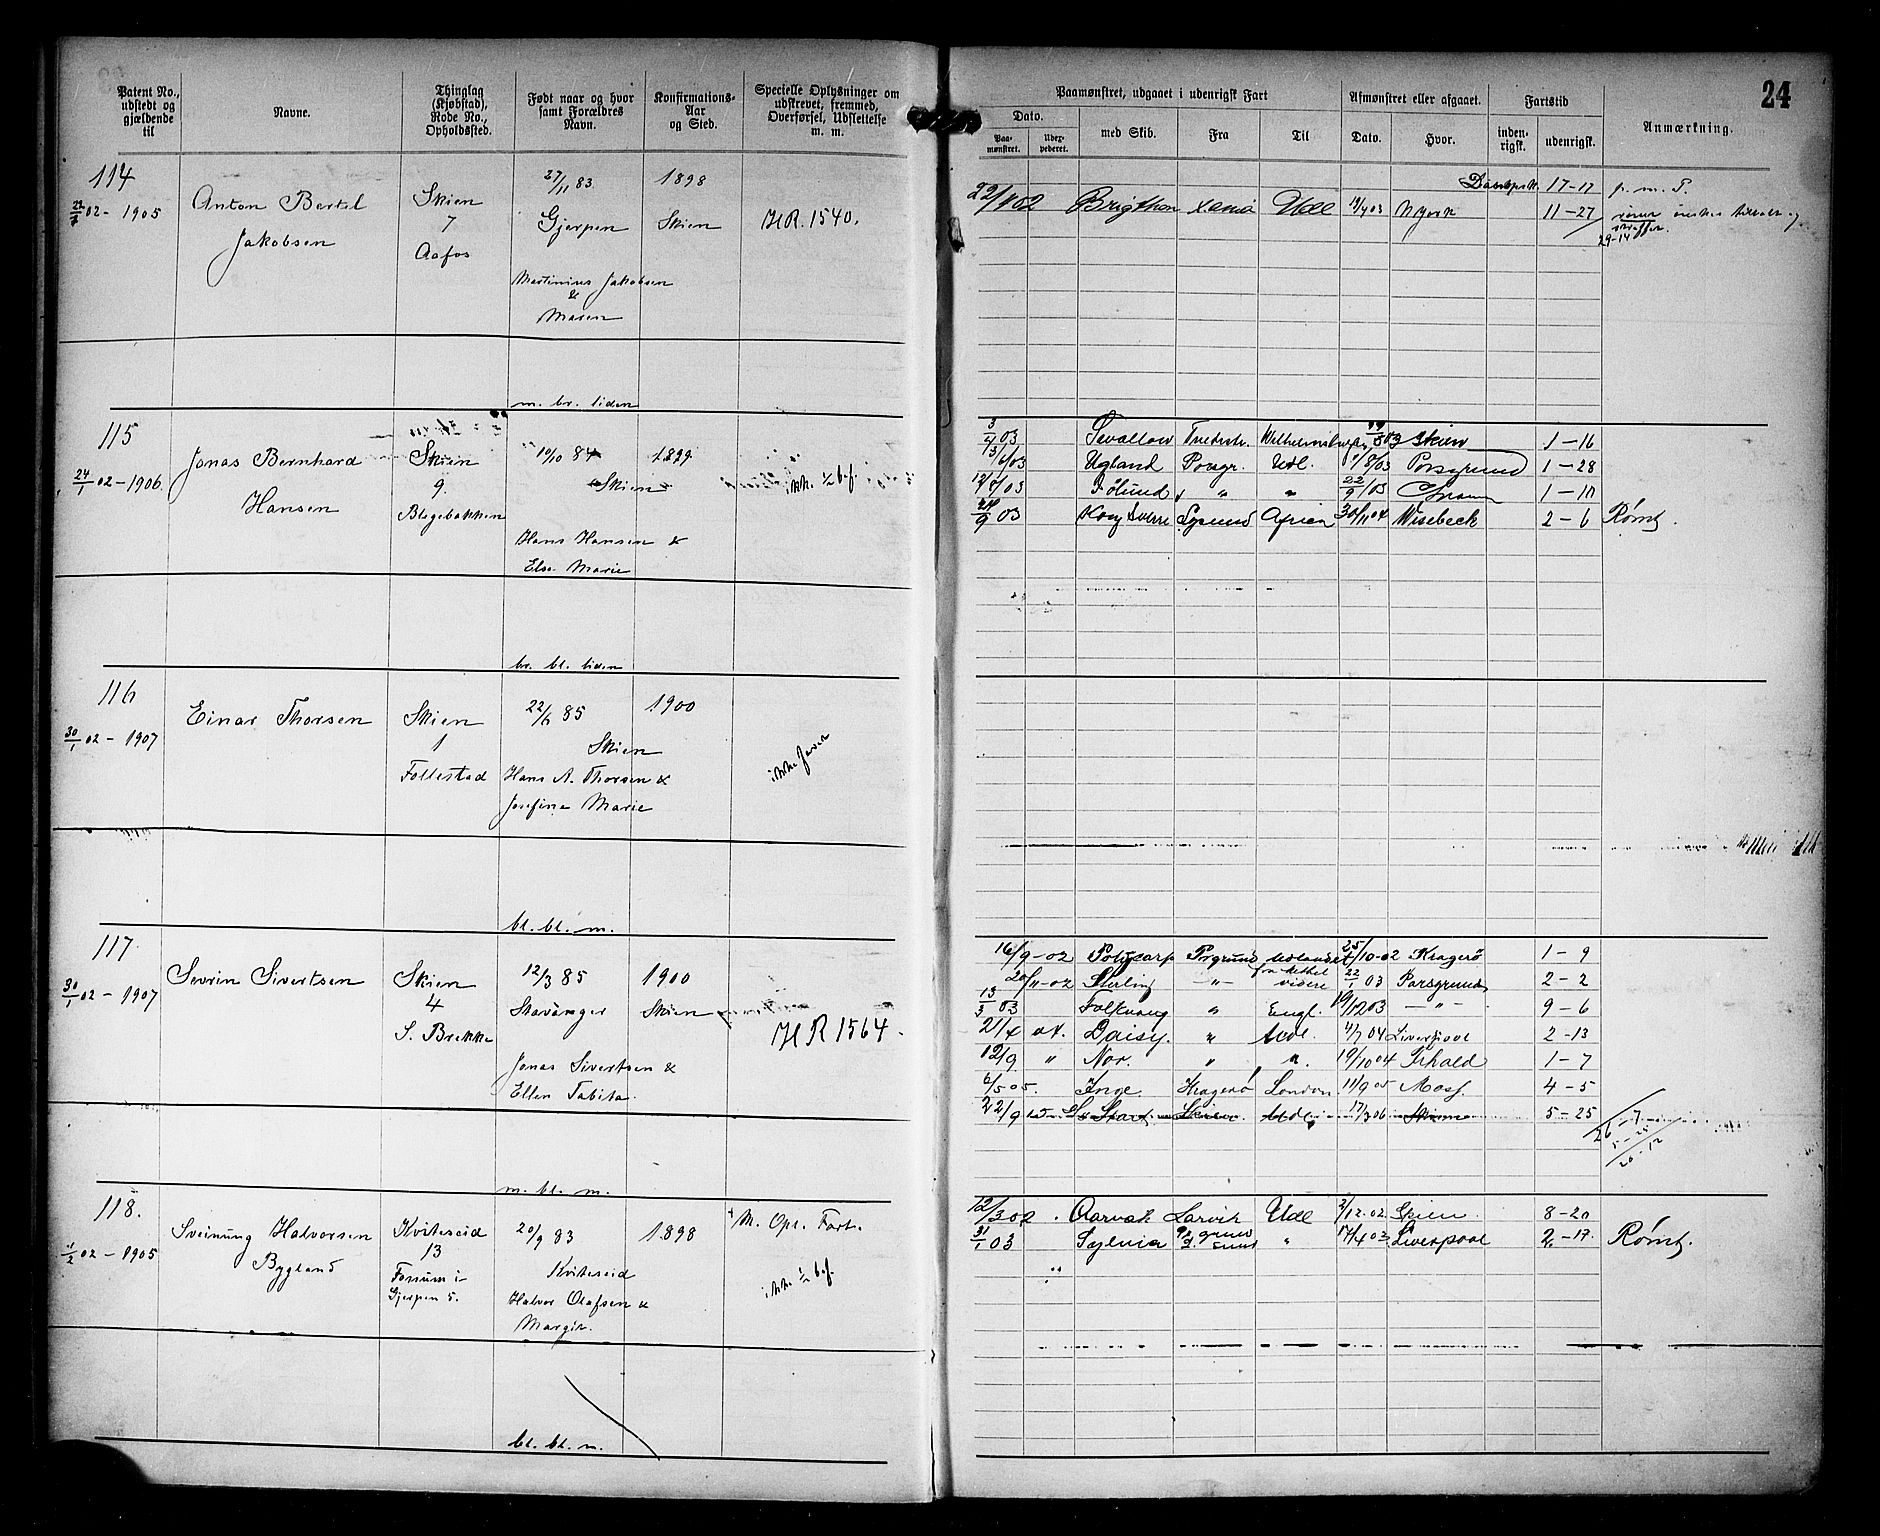 24
Patent No., udstedt og gjældende til
Navne.
Thinglag (Kjøbstad), Rode No., Opholdssted.
Født naar og hvor samt Forældres Navn.
Konfirmations-Aar og Sted.
Specielle Oplysninger om udskrevet, fremmed, Overførsel, Udslettelse m. m.
Paamønstret, udgaaet i udenrigsk Fart
Dato.
Paamønstret.
Udexpederet.
med Skib.
Fra
Til
Afmønstret eller afgaaet.
Dato.
Hvor.
Fartstid
indenrigsk.
udenrigsk.
Anmærkning.
114
02 - 1905
Anton Bertel
Jakobsen
Skien
7
Aafos
27/11 83
Gjerpen
Martinius Jakobsen
&
Maren
m. br. liden
1898
Skien
HR. 1540.
17-17
p. m. T.
02 Brigthon Udl 03 N York 11-27
29-14
115
24/1 02 - 1906.
Jonas Bernhard
Hansen
Skien
9.
Blegebakken
10/10 84
Skien
Hans Hansen &
Else Marie
br. bl. liden
1899
ikke 1/2 b.f.
3/4 03 Svallow Fredrst. Skien 1-16
13/6 03 Ugland Porsgr. Udl. 1/8 03 Porsgrund 1-28
03 " " 22/9 03 1-10
24/9 03 30/11 04 Wisebeck 2-6 Rømt.
116
30/1 02 - 1907
Einar Thorsen
Skien
1
Follestad
22/6 85
Skien
Hans A. Thorsen &
Josefine Marie
bl. bl. m.
1900
ikke faren
117.
30/1 02 - 1907
Sevrin Sivertsen
Skien
4
S. Brekke
12/3 85
Stavanger
Jonas Sivertsen &
Ellen Tabita.
m. bl. m.
1900
Skien
HR 1564.
16/9-02 Polycarp Porgrund Udlandet 25/10-02 Kragerø 1-9
20/11-02 Sterling -"- videre 22/1 03 Porsgrund 2-2
13/3 03 Folkvang " Engl. 19/12 03 -"- 9-6
21/4 04. Daisy. " Udl. 04 Liverpool 2-13
12/9 " Nor. " " 19/10 04 Frhald 1-7
6/5 05. Inge Kragerø London 11/9 05 Moss. 4-5
22/9 Start Skien Udl. 17/3 06 Skien 5-25
26-7
5-25
20-12
118.
1/2 02 - 1905
Sveinung Halvorsen
Bygland
Kviteseid
13
Fossum i
Gjerpen 5.
20/9 83
Kviteseid
Halvor Olafsen &
Margit.
bl. bl. m.
1898
M. Opl. Fart.
ikke 1/2 b.f.
12/3 02 Aarvak Larvik Udl 2/12-02 Skien 8-20
31/1 03 Sylvia " 17/4 03 Liverpool 2-17. Rømt.